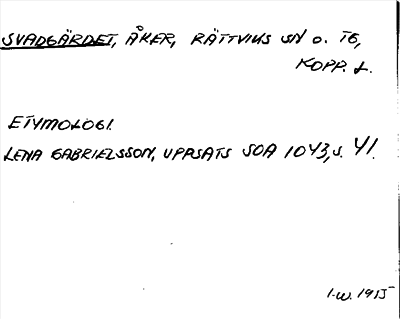 SVADGÄRDET, ÅKER, RÄTTVIKS SN O. TG,
KOPP. L.
ETYMOLOGI.
LENA GABRIELSSON, UPPSATS SOA 1043, S. 41.
I.W. 1955